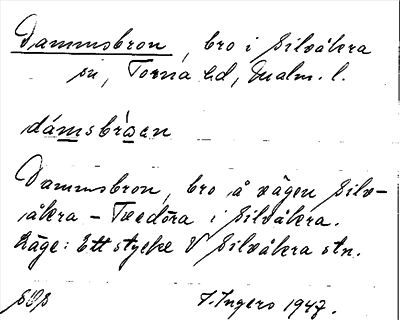 Dammsbron, bro i Silvåkra
sn, Torna hd, Malm. l.
dámsbròen
Dammsbron, bro å vägen Silv-
åkra - Tvedöra i Silvåkra.
Läge: Ett stycke V Silvåkra stn.
I. Ingers 1947.